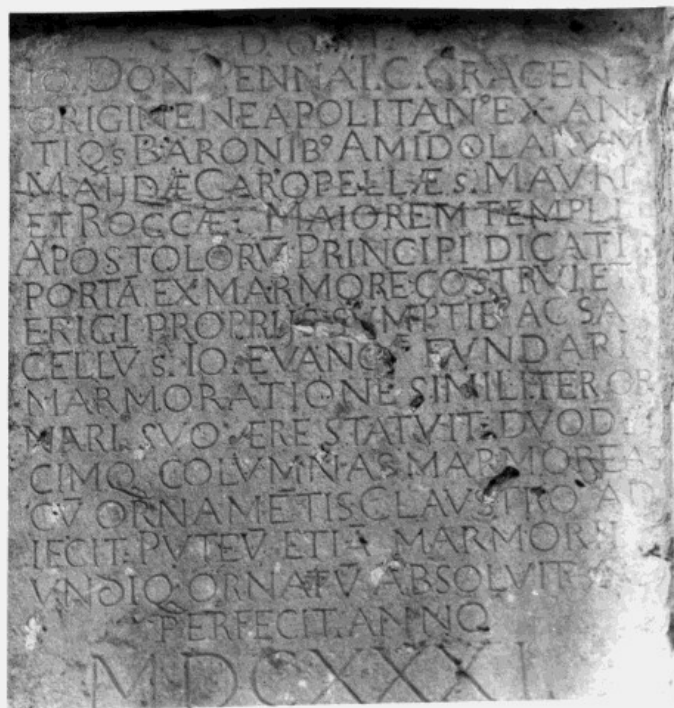 D. O. M.
IO. DON. PENNA I. C. GRAGEN.
ORIGINE NEAPOLITAN⁹ EX AN
TIQs BARONIB⁹ AMĪDOLARVM
MAIJDÆ CAROPELLÆ S. MAVRI
ET ROCCÆ: MAIOREM TEMPLI
APOSTOLORV̄ PRINCIPI DICATI
PORTĀ EX MARMORE CŌSTRVI ET
ERIGI PROPRIJS SVMPTIB AC SA
CELLV̄ S. IO. EVANG FVNDARI
MARMORATIONE SIMILITER OR
NARI SVO ÆRE STATVIT: DVODE
CIMQ COLVMNAS MARMOREAS
CV̄ ORNAMĒTIS CLAVSTRO AD
IECIT: PVTEV̄ ETIĀ MARMORE
VNDIQ ORNATV̄ ABSOLVIT
PERFECIT. ANNO
MDCXXXI